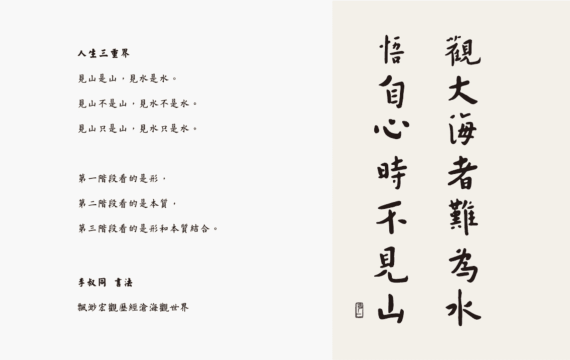 人生三重界
見山是山，見水是水。
見山不是山，見水不是水。
見山只是山，見水只是水。
第一階段看的是形，
第二階段看的是本質，
第三階段看的是形和本質結合。
李叔同 書法
飄渺宏觀歷經滄海觀世界
觀大海者難為水
悟自心時不見山